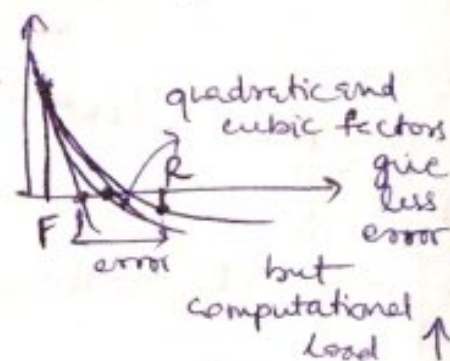 quadratic and
cubic factors
give
less
error
R
F
error
but
computational
load ↑